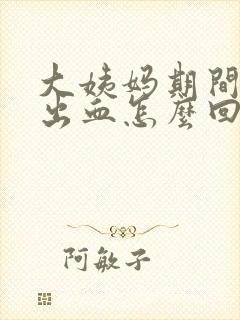 大姨妈期間
出血怎麼回
阿敏子